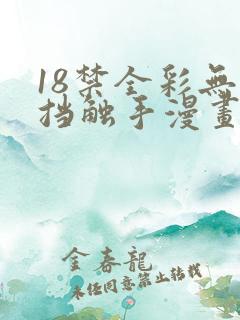 18禁全彩無
挡触手漫畫
金春龍
未经同意禁止转载